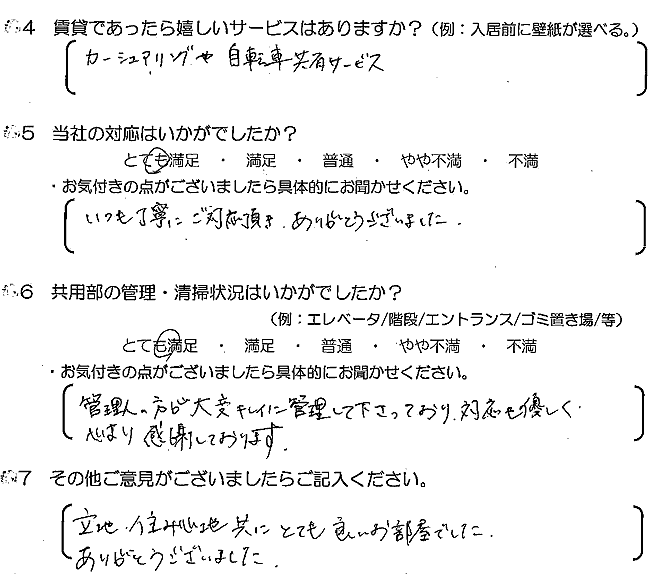 4 賃貸であったら嬉しいサービスはありますか？（例：入居前に壁紙が選べる。）
カーシェアリングや 自転車共有サービス
5 当社の対応はいかがでしたか？
とても満足 ・ 満足 ・ 普通 ・ やや不満 ・ 不満
・お気付きの点がございましたら具体的にお聞かせください。
いつも丁寧にご対応頂き、ありがとうございました。
6 共用部の管理・清掃状況はいかがでしたか？
（例：エレベータ/階段/エントランス/ゴミ置き場/等）
とても満足 ・ 満足 ・ 普通 ・ やや不満 ・ 不満
・お気付きの点がございましたら具体的にお聞かせください。
管理人の方が大変キレイに管理して下さっており、対応も優しく
心より感謝しております。
7 その他ご意見がございましたらご記入ください。
立地、住み心地共にとても良いお部屋でした。
ありがとうございました。